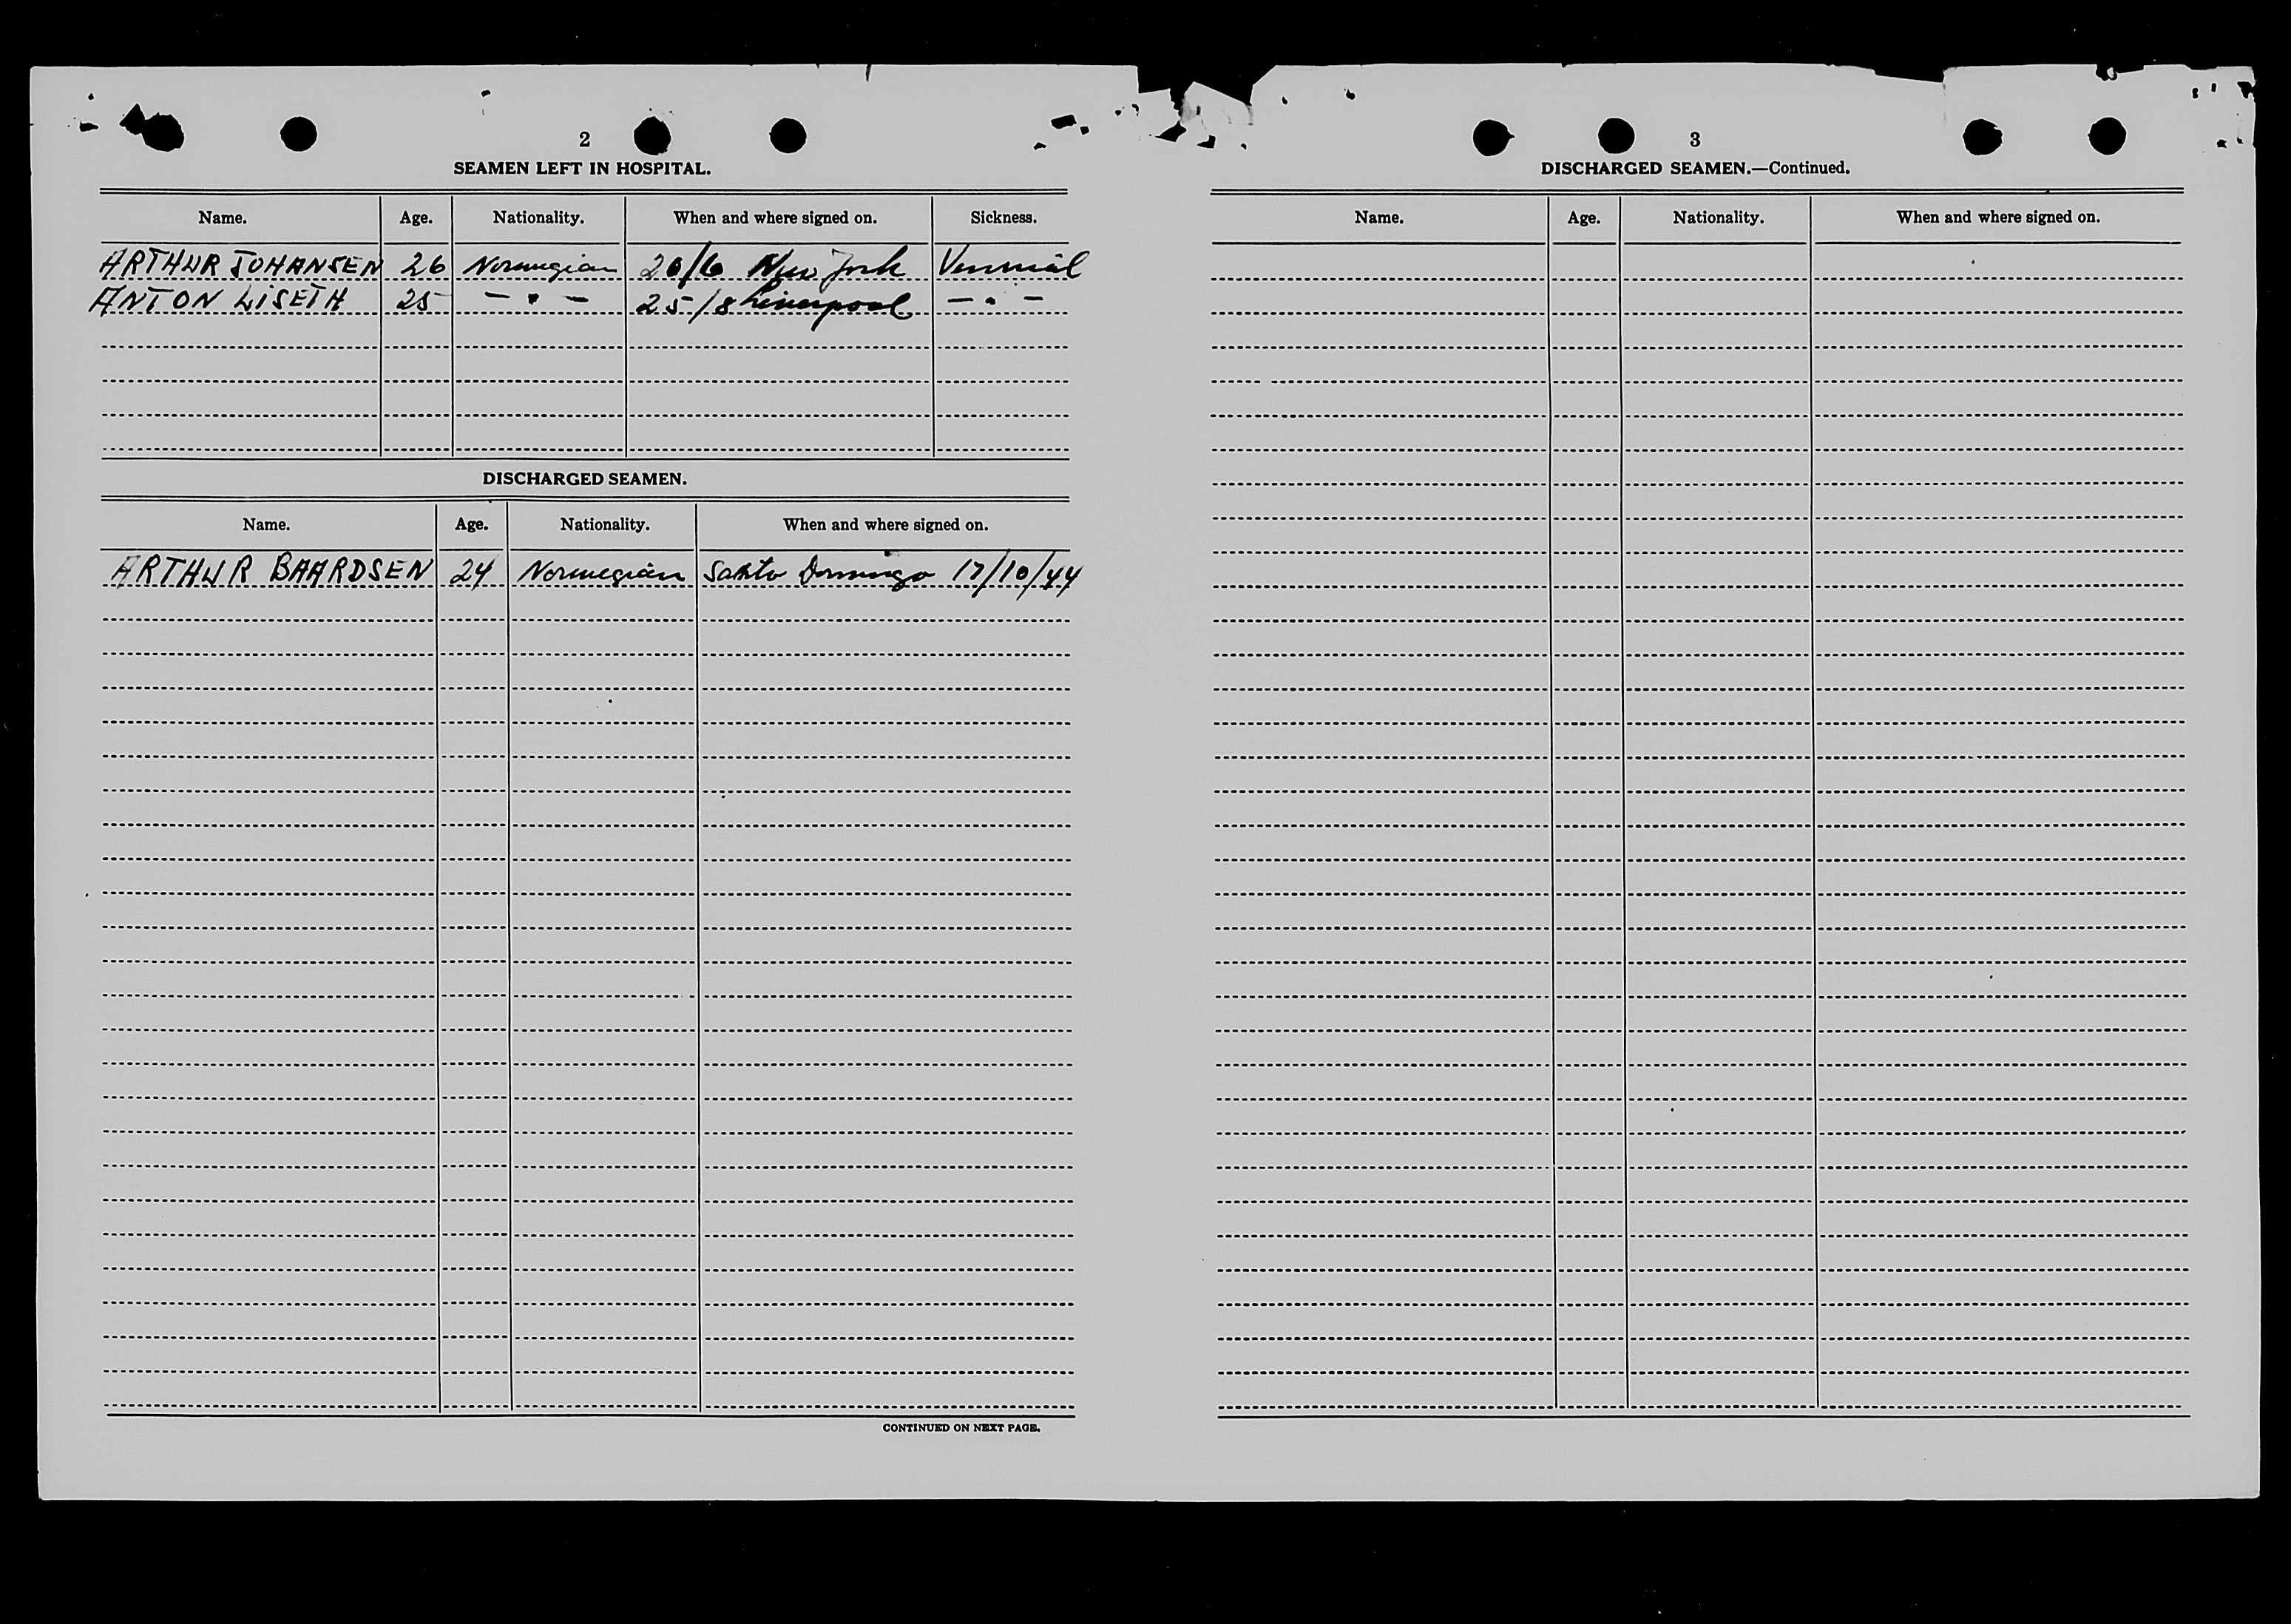 2
SEAMEN LEFT IN HOSPITAL.
Name. Age. Nationality. When and where signed on. Sickness.
ARTHUR JOHANSEN 26 Norwegian 20/6 New York
ANTON LISETH 25 - " - 25/8 Liverpool - " -
DISCHARGED SEAMEN.
Name. Age. Nationality. When and where signed on.
ARTHUR BAARDSEN 24 Norwegian Santo Domingo 17/10/44
CONTINUED ON NEXT PAGE.
3
DISCHARGED SEAMEN.—Continued.
Name. Age. Nationality. When and where signed on.